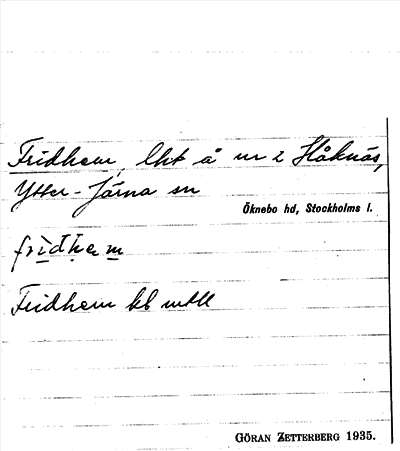 Fridhem, lht å nr 2 Håknäs,
Ytter-Järna sn
Öknebo hd, Stockholms l.
fridhem
Fridhem kbl mtll
GÖRAN ZETTERBERG 1935.